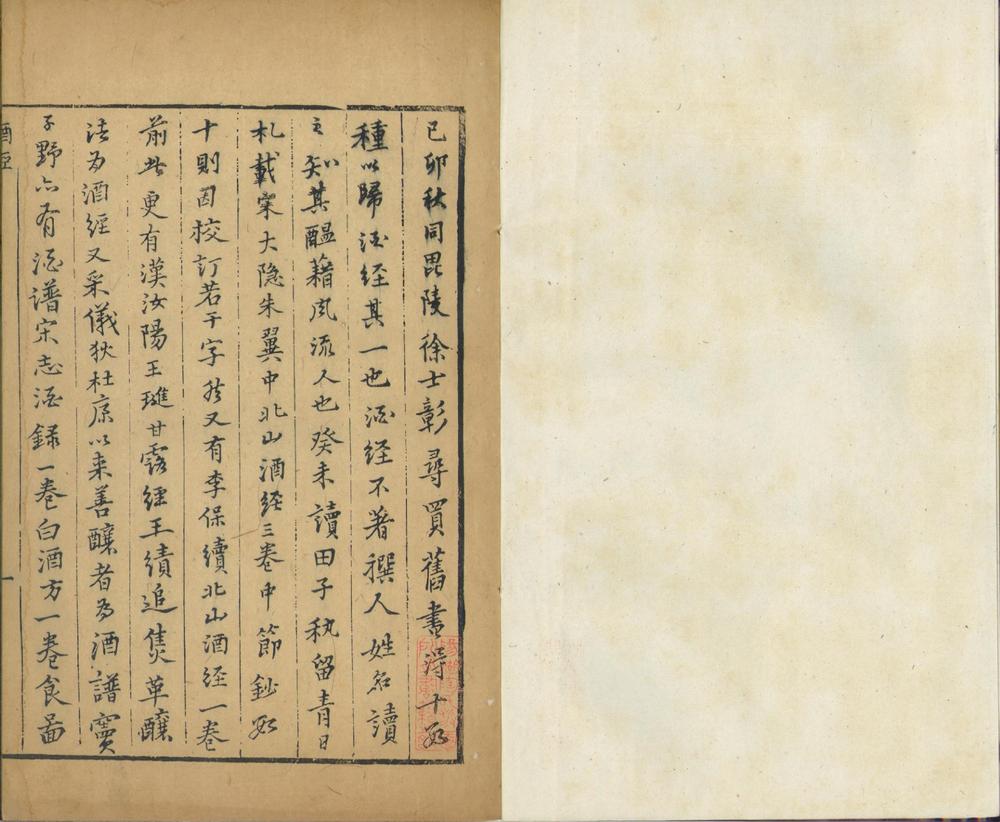 己卯秋同毘陵徐士彰尋買舊書得十數
種以歸酒經其一也酒經不著撰人姓名讀
之知其醞藉風流人也癸未讀田子秇留青日
札載宋大隐朱翼中北山酒經三卷中節鈔數
十則因校訂若干字然又有李保續北山酒經一卷
前此更有漢汝陽王璡甘露經王績追焦革釀
法为酒經又采儀狄杜康以来善釀者为酒譜竇
子野亦有酒譜宋志酒録一卷白酒方一卷食啚
酒經
一